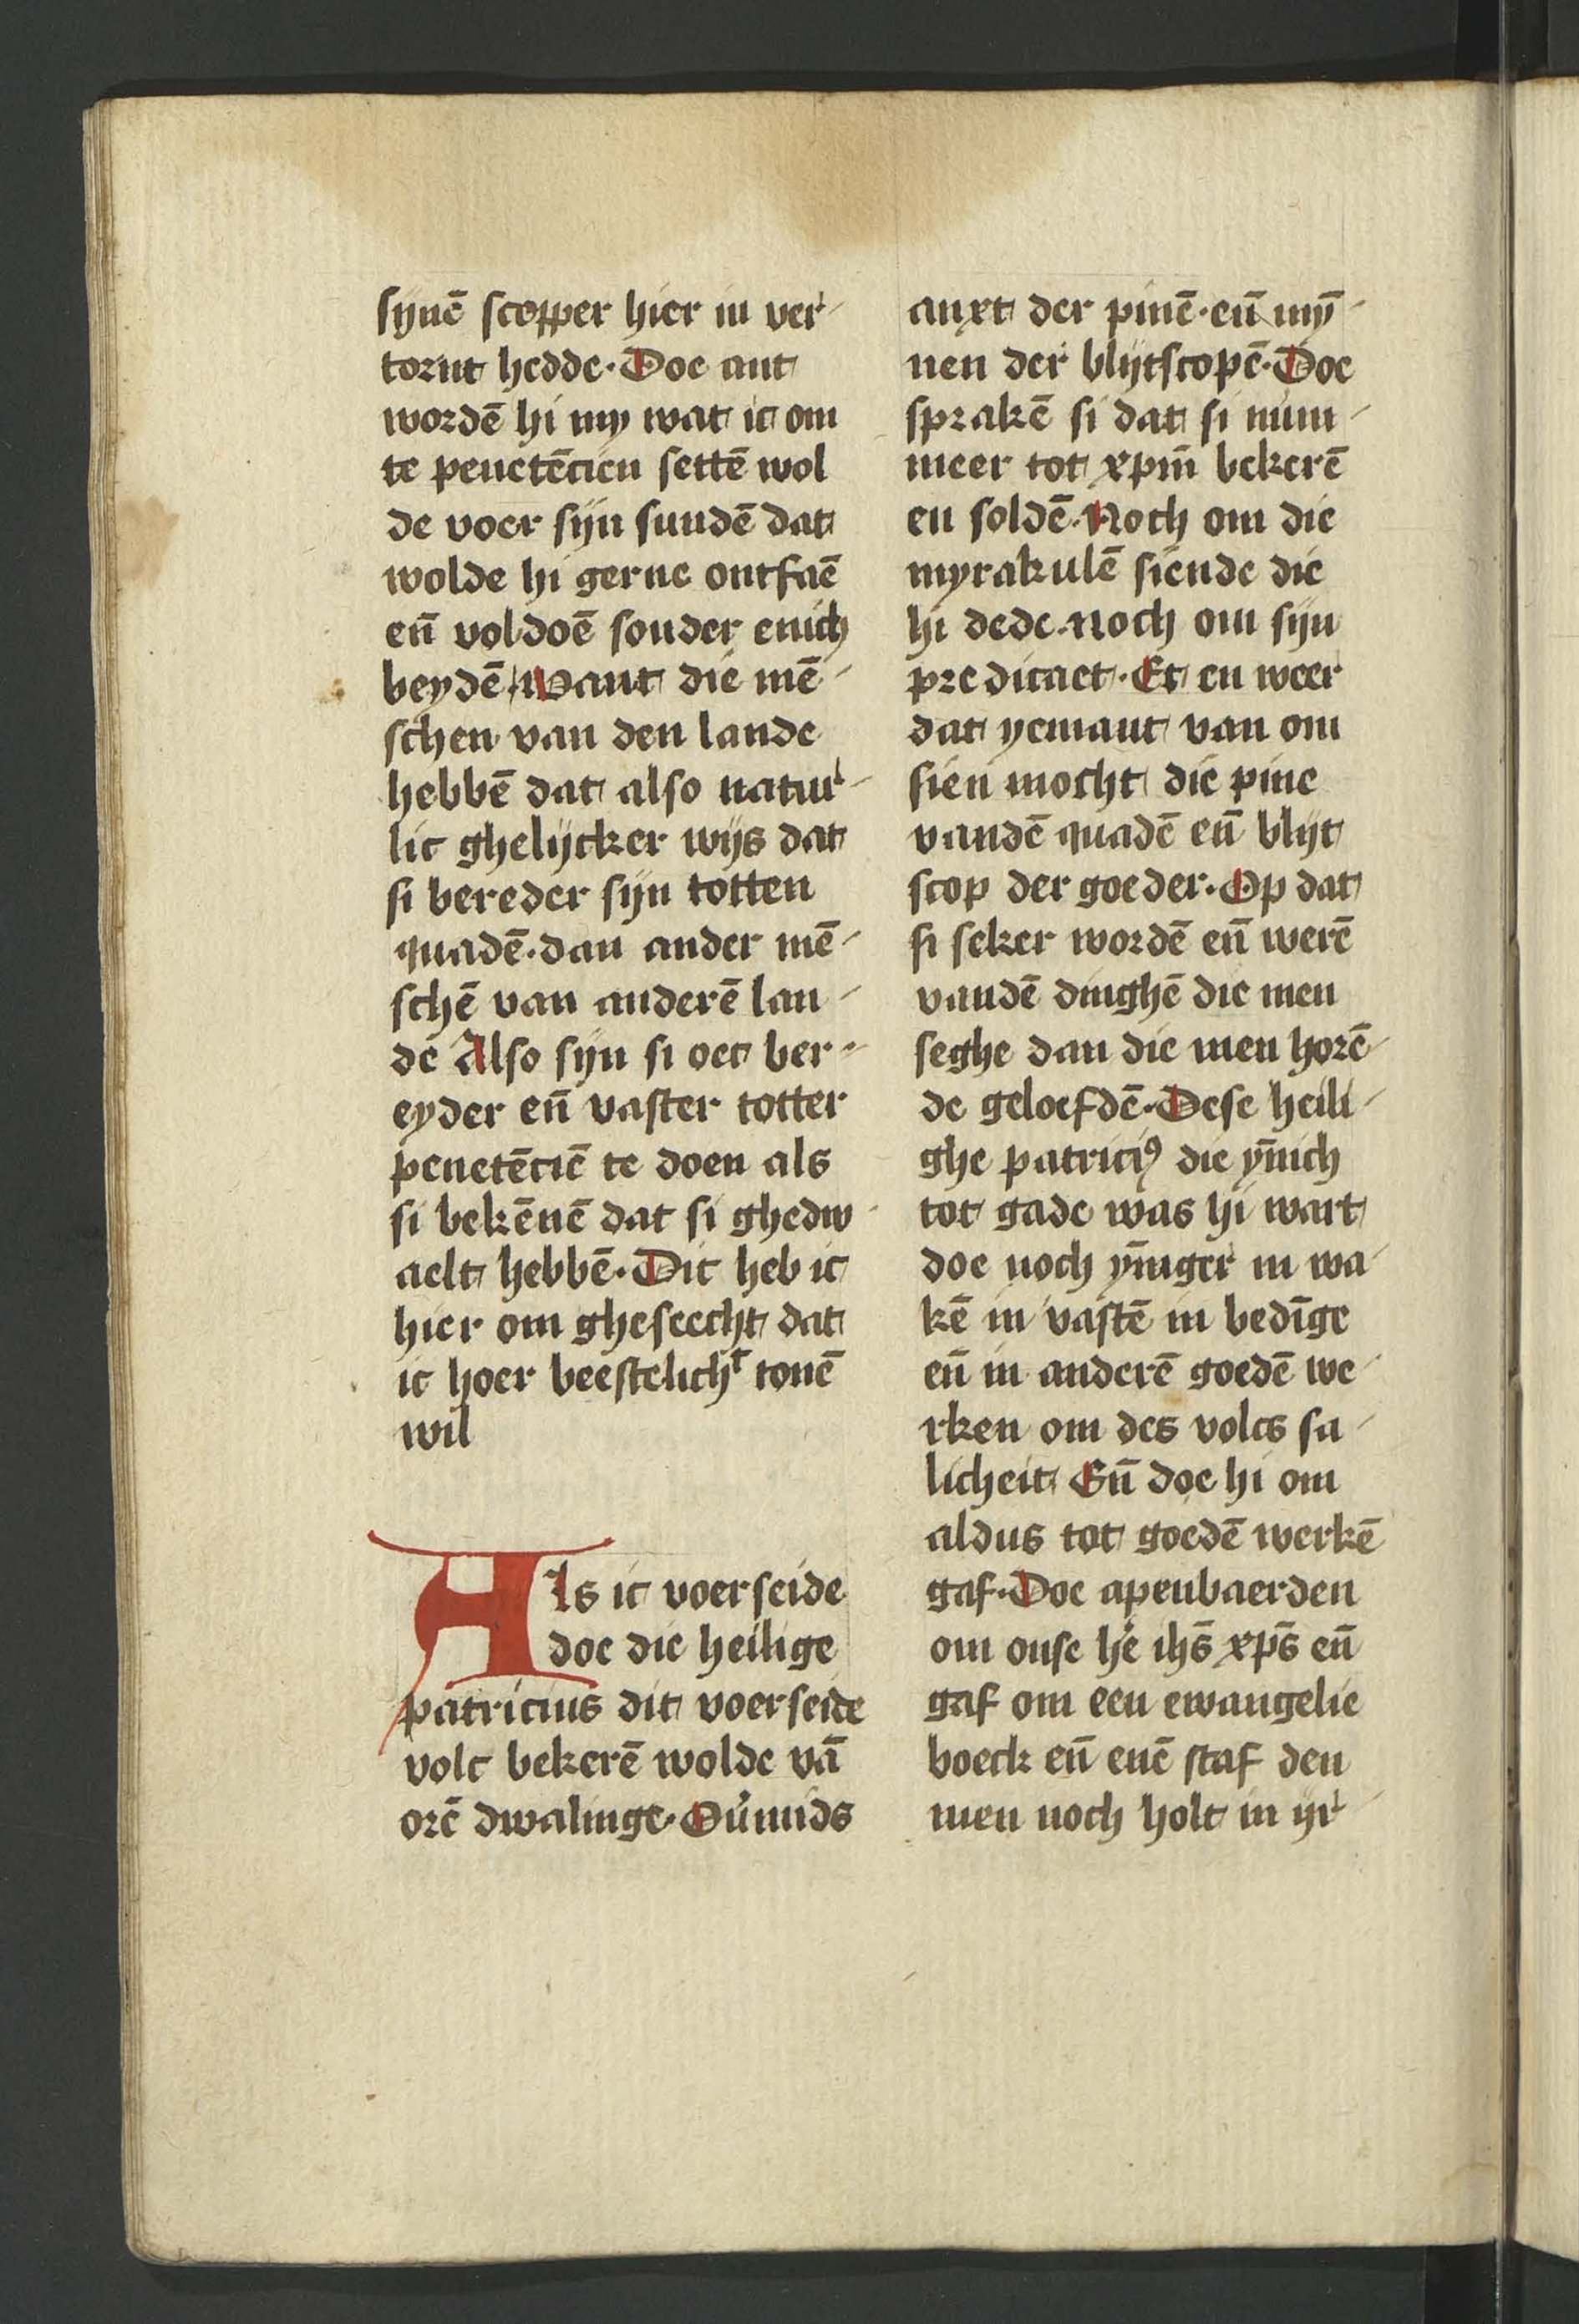 synē scopper hier in ver-
tornt hedde. Doe ant
wordē hi my wat ic om
te penetēcien settē wol
de voer sijn sundē dat
wolde hi gerne ontfaē
eñ voldoē sonder enich
beydē. Want die mē-
schen van den lande
hebbē dat also natur-
lic ghelijcker wijs dat
si bereder sijn totten
quadē. dan ander mē-
schē van anderē lan-
dē Also sijn si oec ber-
eyder eñ vaster totter
penetēciē te doen als
si bekēnē dat si ghedw-
aelt hebbē. Dit heb ic
hier om gheseecht dat
ic hoer beestelichᵗ tonē
wil
Als ic voerseide
doe die heilige
patricius dit voerseide
volc bekerē wolde vā
orē dwalinge. Oũmids
anxt der pinē. eñ mȳ-
nen der blijtscopē. Doe
sprakē si dat si num-
meer tot xpm̄ bekerē
en soldē. Noch om die
myrakulē siende die
hi dede. noch om sijn
predicaet. Et en weer
dat yemant van om
sien mocht die pine
vandē quadē eñ blijt
scop der goeder. Op dat
si seker wordē eñ werē
vandē dinghē die men
seghe dan die men horē-
de geloefdē. Dese heili-
ghe patriciꝰ die ȳnich
tot gade was hi wart
doe noch ȳniger in wa-
kē in vastē in bedīge
eñ in anderē goedē we-
rken om des volcs sa-
licheit Eñ doe hi om
aldus tot goedē werkē
gaf. Doe apenbaerden
om onse he͛ ihs̄ xps̄ eñ
gaf om een ewangelie
boeck eñ enē staf den
men noch holt in yr-